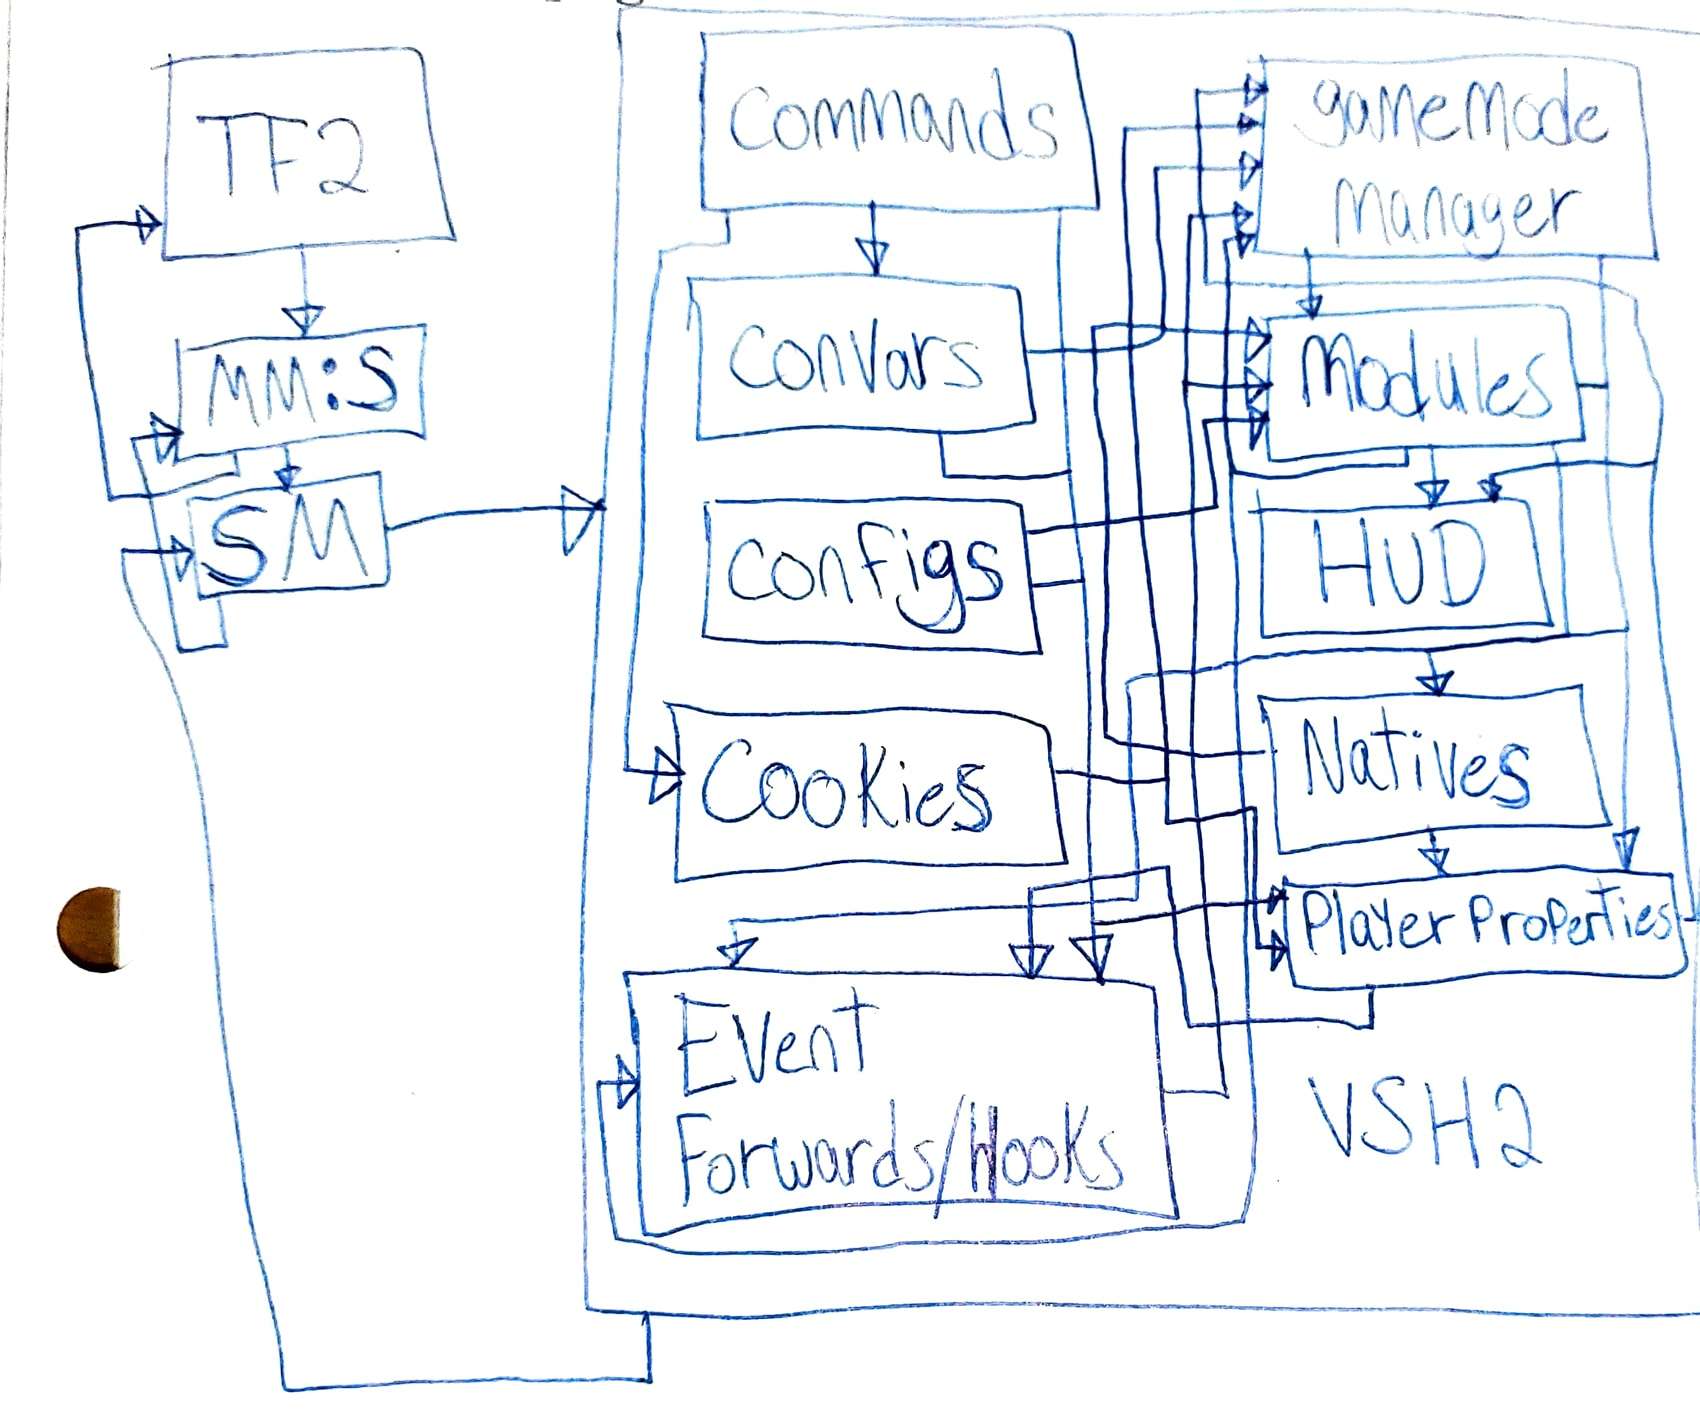 TF2
MM:S
SM
Commands
ConVars
Configs
Cookies
Event
Forwards/Hooks
gameMode
Manager
Modules
HUD
Natives
Player Properties
VSH2